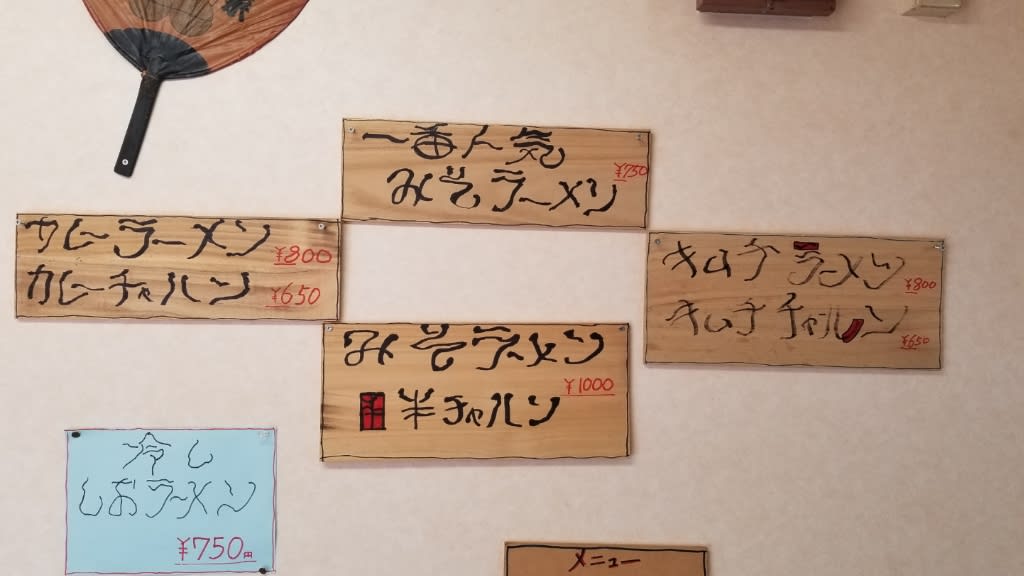 一番人気
みそラーメン
¥750
カレーラーメン
¥800
カレーチャーハン
¥650
キムチラーメン
¥800
キムチチャーハン
¥650
みそラーメン
半チャーハン
¥1000
冷し
しおラーメン
¥750円
メニュー